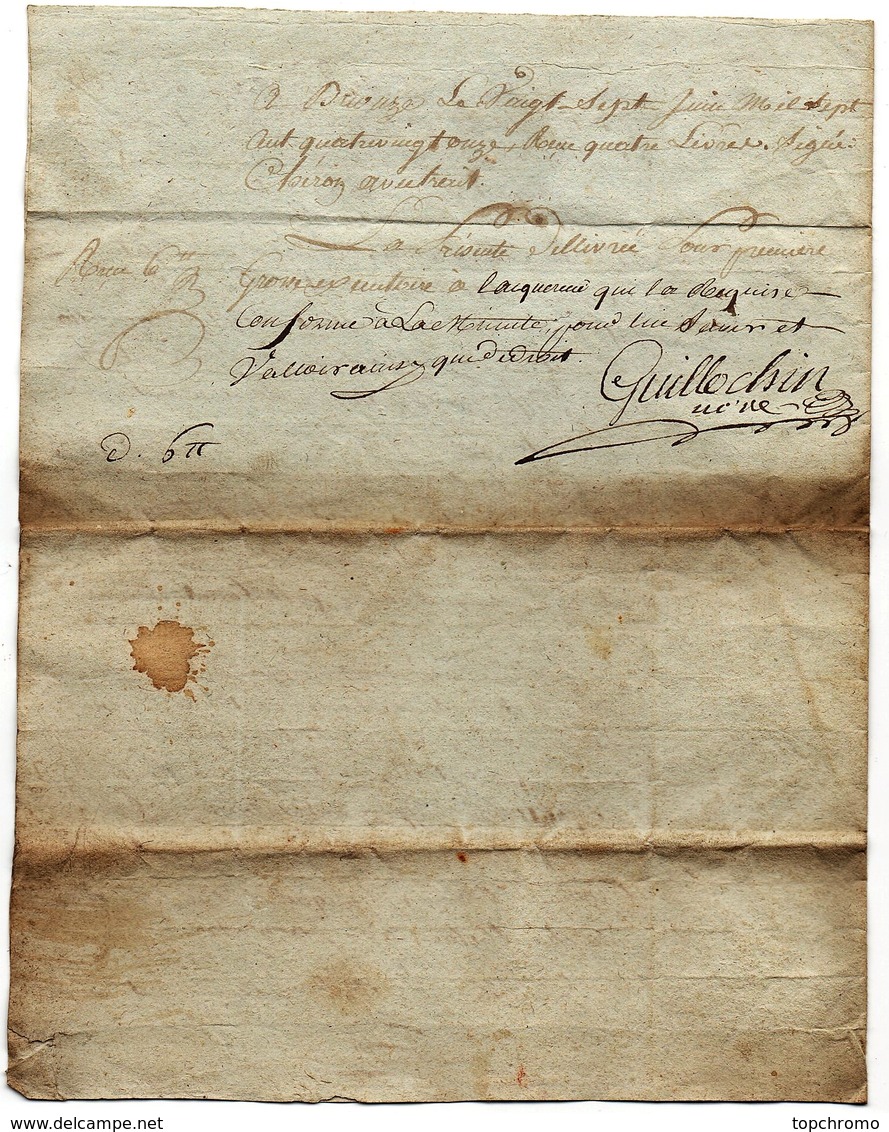 a Briouze Le Vingt-Sept Juin Mil Sept
Cent quatrevingt onze, Reçu quatre Livres. Signé:
Chiron avec trait.
La Présente dellivrée Pour première
Reçu 6 tt
Grosse exécutoire à l'acquereur qui l'a Requise
Conforme à La Minute, pour lui Servir et
Valloir ainsy que de droit.
Guillochin
no.re
d. 6 tt
www.delcampe.net
topchromo